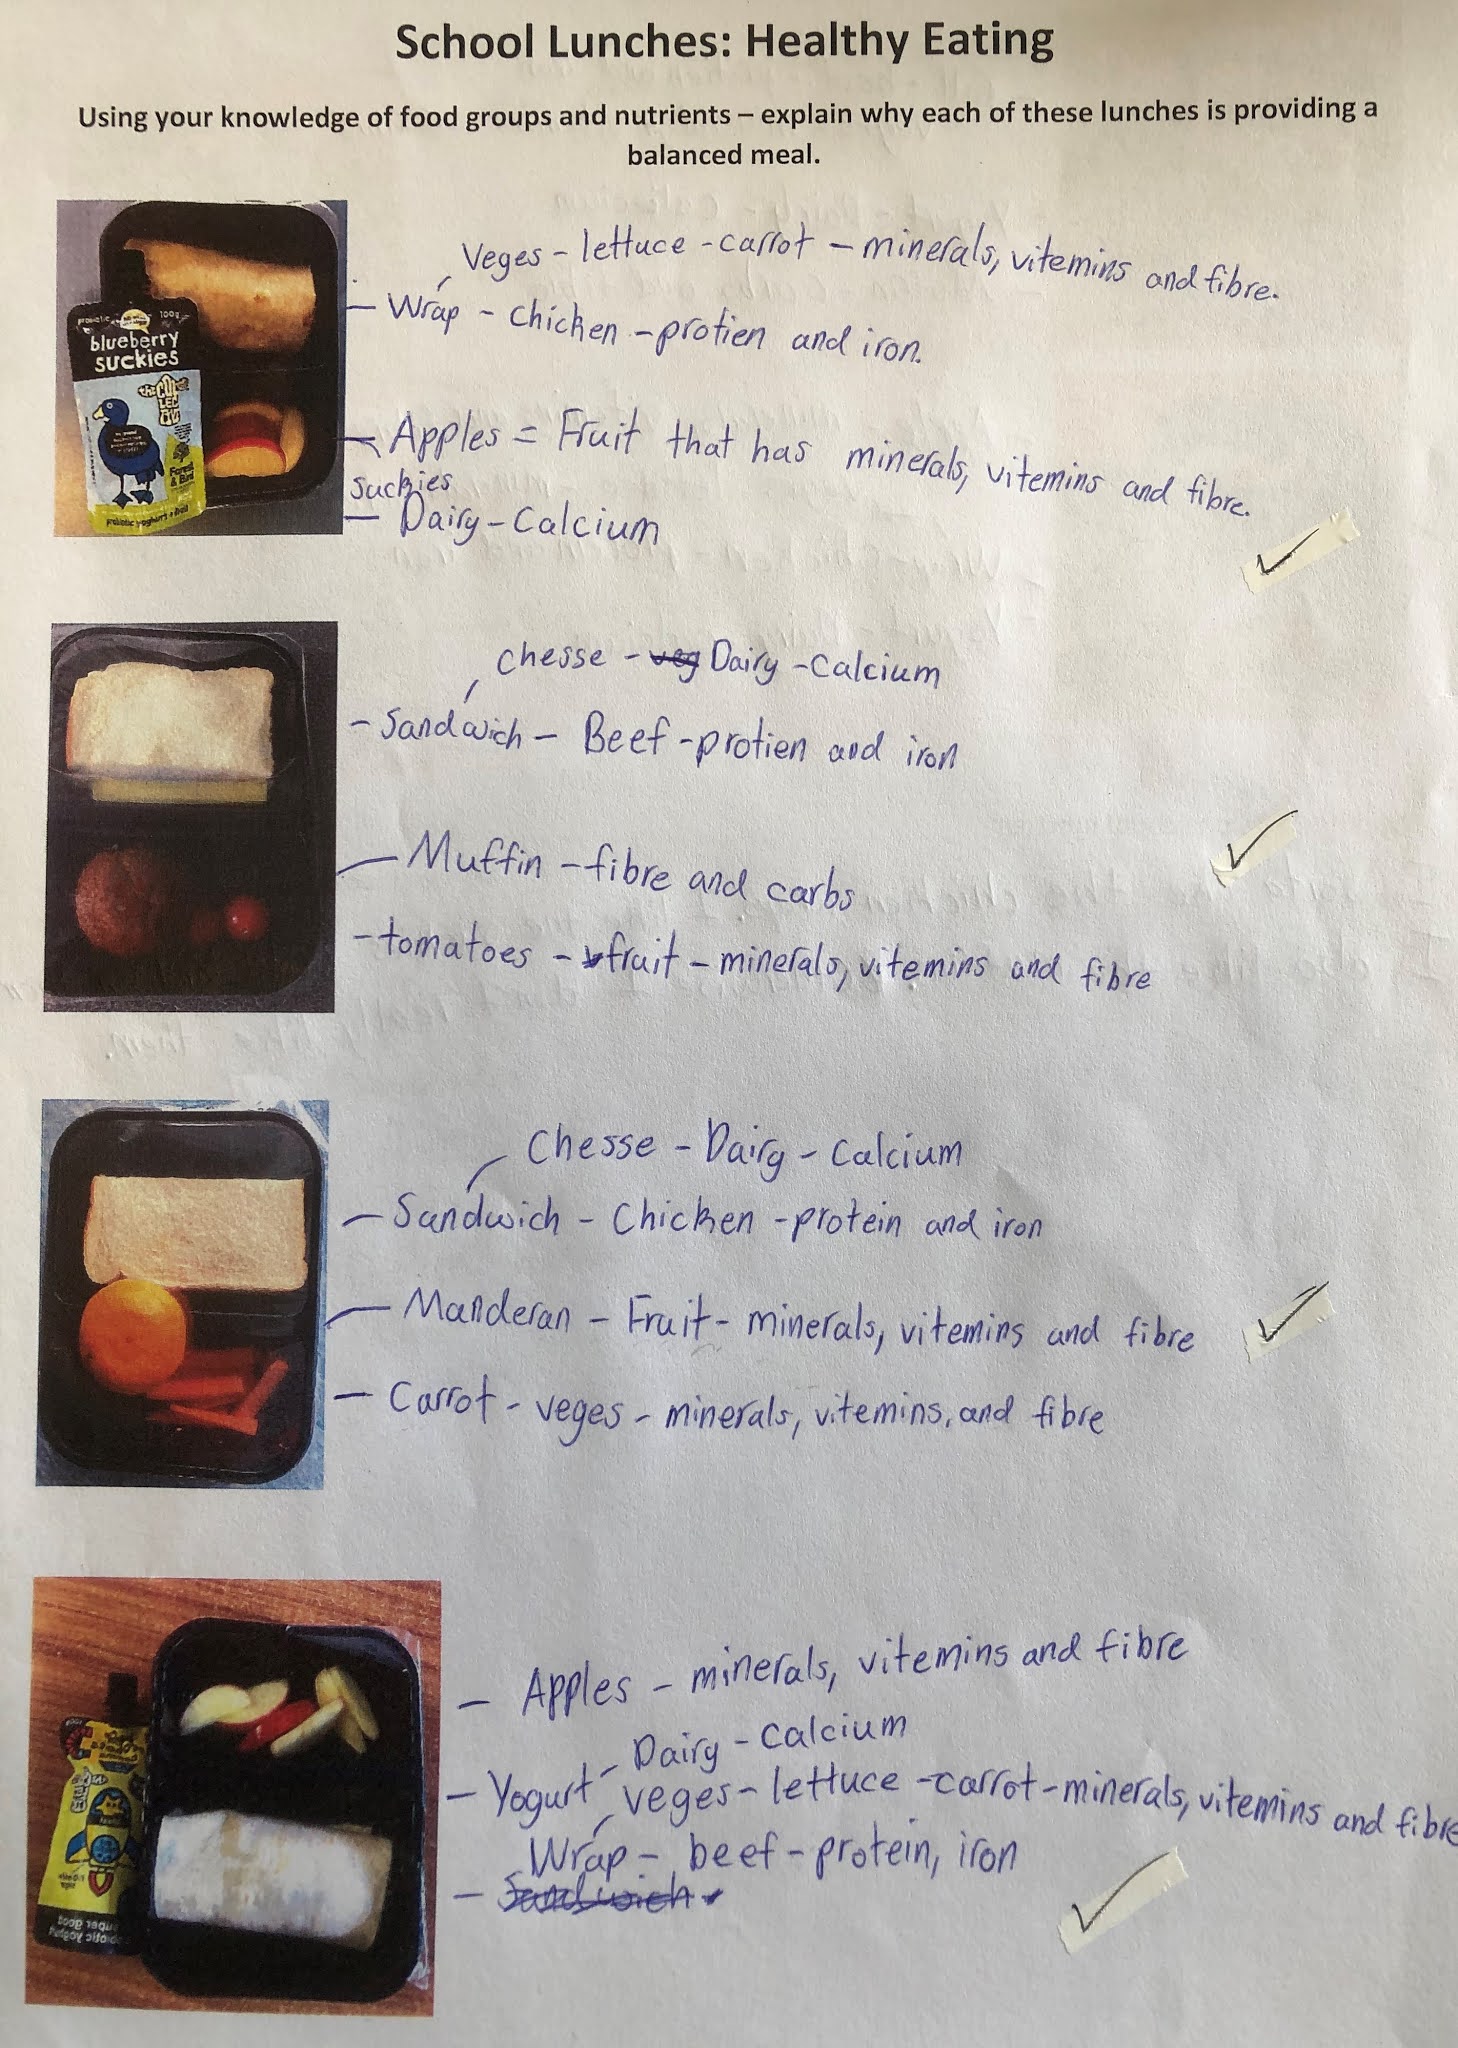 School Lunches: Healthy Eating
Using your knowledge of food groups and nutrients – explain why each of these lunches is providing a
balanced meal.
Veges - lettuce - carrot - minerals, vitemins and fibre.
- Wrap - chicken - protien and iron.
probiotic
100g
blueberry
suckies
the
COL
LEC
TIVE
Forest
& Bird
probiotic yoghurt
- Apples = Fruit that has minerals, vitemins and fibre.
suckies
- Dairy - Calcium
chesse - veg Dairy - Calcium
- Sandwich - Beef - protien and iron
- Muffin - fibre and carbs
- tomatoes - fruit - minerals, vitemins and fibre
Chesse - Dairy - Calcium
- Sandwich - Chicken - protein and iron
- Manderan - Fruit - minerals, vitemins and fibre
- Carrot - veges - minerals, vitemins, and fibre
- Apples - minerals, vitemins and fibre
Dairy - Calcium
- Yogurt
veges - lettuce - carrot - minerals, vitemins and fibre
Wrap - beef - protein, iron
- Sandwich
super good
probiotic yoghurt